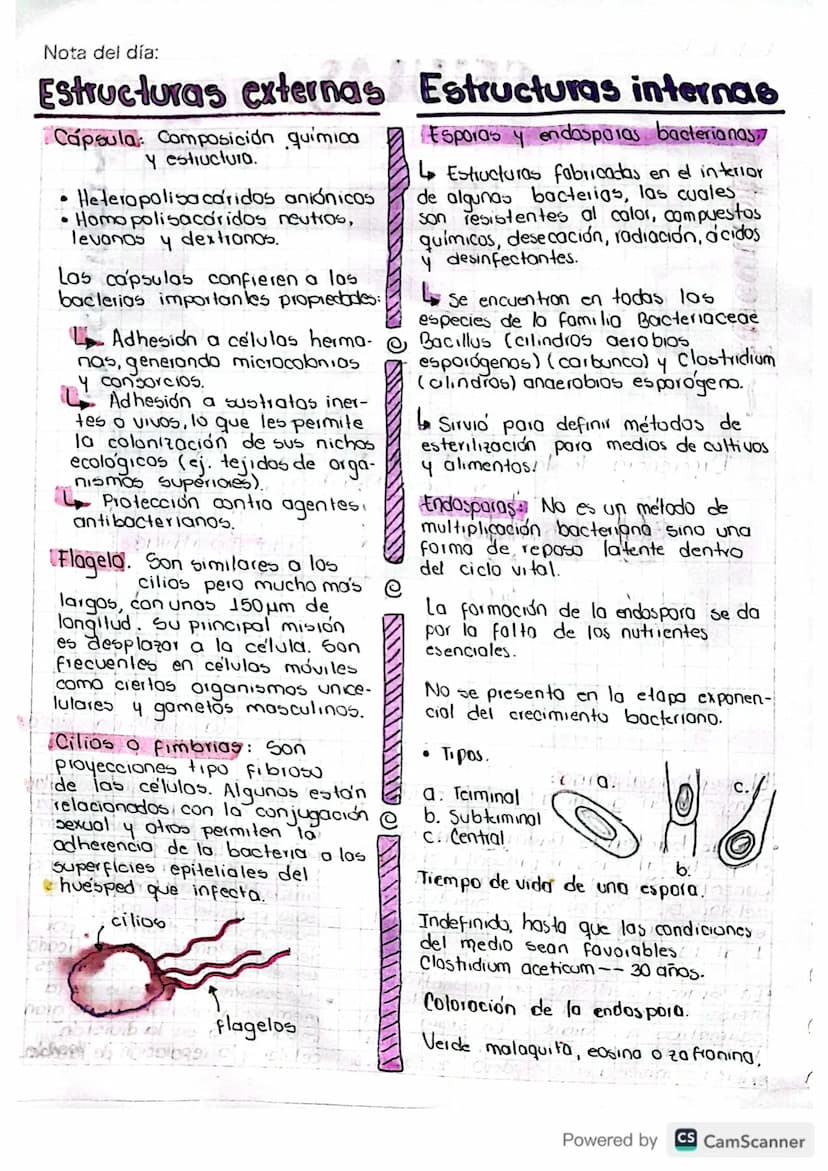 Nota del día:
Estructuras externas
Cápsula: Composición química
y estructura.
• Heteropolisacáridos aniónicos
• Homopolisacáridos neutros,
levanos y dextranos.
Las cápsulas confieren a las
bacterias importantes propiedades:
↳ Adhesión a células herma-
nas, generando microcolonias
y consorcios.
↳ Adhesión a sustratos iner-
tes o vivos, lo que les permite
la colonización de sus nichos
ecológicos (ej. tejidos de orga-
nismos superiores).
↳ Protección contra agentes
antibacterianos.
Flagelo. Son similares a los
cilios pero mucho más
largos, con unas 150 µm de
longitud. Su principal misión
es desplazar a la célula. Son
frecuentes en células móviles
como ciertos organismos unice-
lulares y gametos masculinos.
Cilios o fimbrias: Son
proyecciones tipo fibroso
de las células. Algunos están
relacionados con la conjugación
sexual y otros permiten la
adherencia de la bacteria a las
superficies epiteliales del
huésped que infecta.
cilios
flagelos
Estructuras internas
Esporas y endosporas bacterianas
↳ Estructuras fabricadas en el interior
de algunas bacterias, las cuales
son resistentes al calor, compuestos
químicos, desecación, radiación, ácidos
y desinfectantes.
↳ Se encuentran en todas las
especies de la familia Bacteriaceae
Bacillus (cilindros aerobios
esporógenos) (carbunco) y Clostridium
(cilindros) anaerobios esporógeno.
↳ Sirvió para definir métodos de
esterilización para medios de cultivos
y alimentos.
Endosporas: No es un método de
multiplicación bacteriana sino una
forma de reposo latente dentro
del ciclo vital.
La formación de la endospora se da
por la falta de los nutrientes
esenciales.
No se presenta en la etapa exponen-
cial del crecimiento bacteriano.
• Tipos.
a. Terminal
b. Subterminal
c. Central
a.
b.
c.
Tiempo de vida de una espora.
Indefinido, hasta que las condiciones
del medio sean favorables
Clostridium aceticum -- 30 años.
Coloración de la endospora.
Verde malaquita, eosina o zafranina.
Powered by CS CamScanner